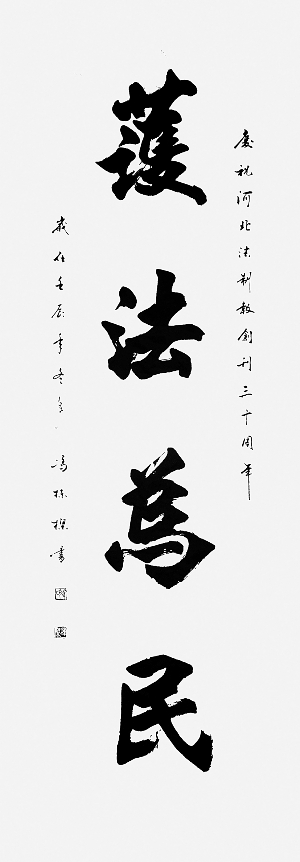 慶祝河北法制報創刊三十周年
護法為民
歲在壬辰年冬
馮書